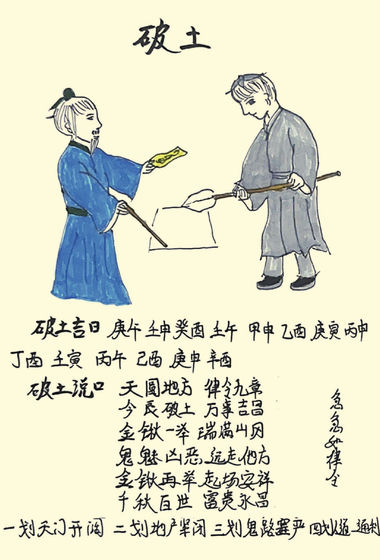 破土
破土吉日 庚午 壬申 癸酉 壬午 甲申 乙酉 庚寅 丙申
丁酉 壬寅 丙午 己酉 庚申 辛酉
破土说口 天圆地方 律令九章
今辰破土 万事吉昌
金锹一举 瑞满山冈
鬼魅凶恶 远走他方
金锹再举 起场安祥
千秋百世 富贵永昌
急急如律令
一划天门开阔 二划地户 闭 三划鬼路 严 四划人道 通利